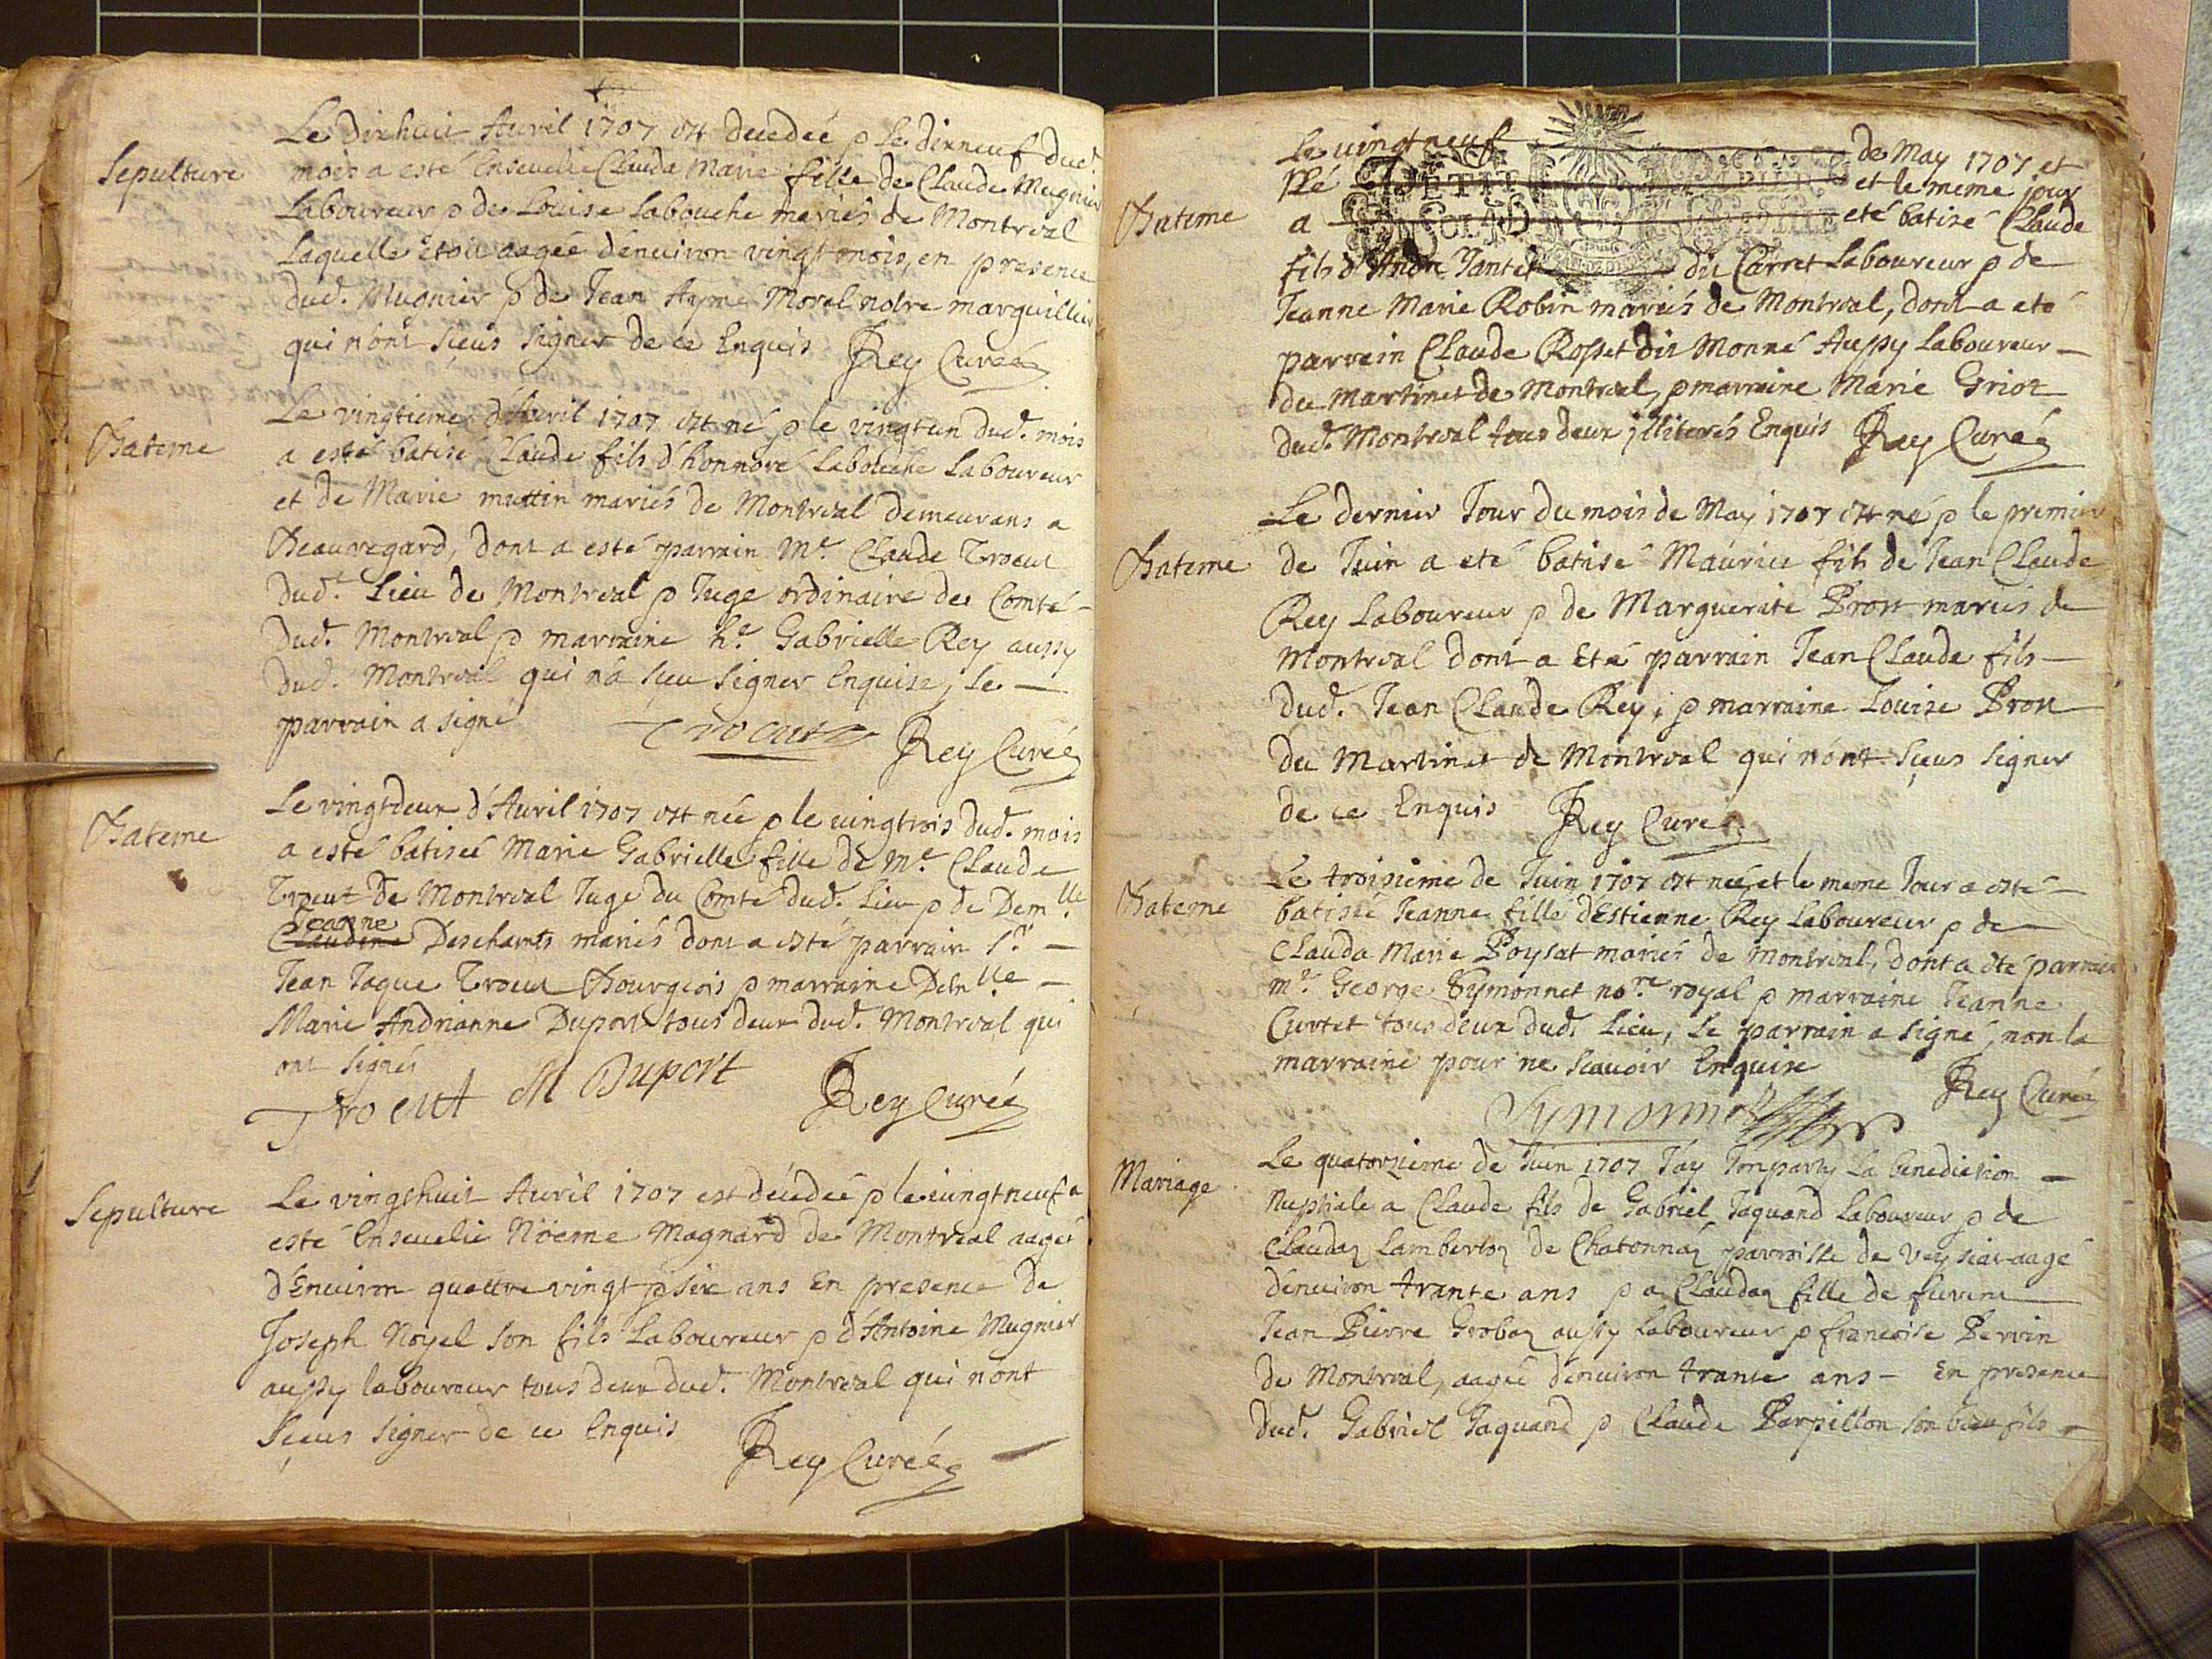 Sepulture
Le dixhuit Avril 1707 est decedée & le dixneuf dud.
mois a esté Ensevelie Clauda Marie fille de Claude Mugnier
Laboureur & de Louise Labouche mariés de Montreal
Laquelle étoit aagée d'environ vingt mois, en presence
dud. Mugnier & de Jean Aymé Morel notre marguillier
qui n'ont sceus signer de ce Enquis Rey Curé
Bateme
Le vingtieme d'Avril 1707 est né & le vingt un dud. mois
a esté batisé Claude fils d'honnoré Labouche Laboureur
et de Marie muttin mariés de Montreal demeurans a
Beauregard, dont a esté parrain Me. Claude Trocut
dud. Lieu de Montreal & Juge ordinaire du Comté
dud. Montreal & marraine he. Gabrielle Rey aussy
dud. Montreal qui n'a sceu signer Enquise, Le
parrain a signé Trocut Rey Curé
Bateme
Le vingtdeux d'Avril 1707 est née & le vingtrois dud. mois
a esté batiseé Marie Gabrielle fille de Me. Claude
Trocut de Montreal Juge du Comté dud. Lieu & de Demlle.
Jeanne
Claudine Deschamts mariés dont a esté parrain Sr.
Jean Jaque Trocut Bourgeois & marraine Demlle.
Marie Andrianne Duport tous deux dud. Montreal qui
ont signés
Trocut M Duport Rey Curé
Sepulture
Le vingthuit Avril 1707 est décedée & le vingt neuf a
esté Ensevelie Nöeme Magnard de Montreal aagée
d'Environ quattre vingt & six ans En presence de
Joseph Noyel son fils Laboureur & d'Antoine Mugnier
aussy laboureur tous deux dud. Montreal qui n'ont
sceus signer de ce Enquis Rey Curé
Bateme
Le vingt neuf de May 1707 et
Né et le meme jour
PETIT PAPIER
a eté batisé Claude
fils d'André Tantet dit Carret Laboureur & de
Jeanne Marie Robin mariés de Montreal, dont a eté
parrain Claude Rosset dit Monné Aussy Laboureur
du Martinet de Montreal, & marraine Marie Griot
dud. Montreal tous deux illiterés Enquis Rey Curé
Bateme
Le dernier Jour du mois de May 1707 est né & le premier
de Juin a eté batisé Maurice fils de Jean Claude
Rey Laboureur & de Marguerite Bron mariés de
Montreal dont a Eté parrain Jean Claude fils
dud. Jean Claude Rey, & marraine Louise Bron
du Martinet de Montreal qui n'ont sceus signer
de ce Enquis Rey Curé
Bateme
Le troisieme de Juin 1707 est née, et le meme Jour a esté
batiseé Jeanne fille d'Estienne Rey Laboureur & de
Clauda Marie Poysat mariés de Montreal, dont a eté parrain
me. George Symonnet nore. royal & marraine Jeanne
Curtet tous deux dud. Lieu, Le parrain a signé, non la
marraine pour ne scavoir Enquise Rey Curé
Symonnet
Mariage
Le quatorzieme de Juin 1707 J'ay Jmparty La benediction
Nuptiale a Claude fils de Gabriel Jaquand Laboureur & de
Claudaz Lambertoz de Chatonnaz parroisse de Veysiat aagé
d'environ trante ans & a Claudaz fille de furent
Jean Pierre Grobaz aussy Laboureur & francoise Pervin
de Montreal, aagée d'environ trante ans - En presence
dud. Gabriel Jaquand & Claude Parpillon son beau fils